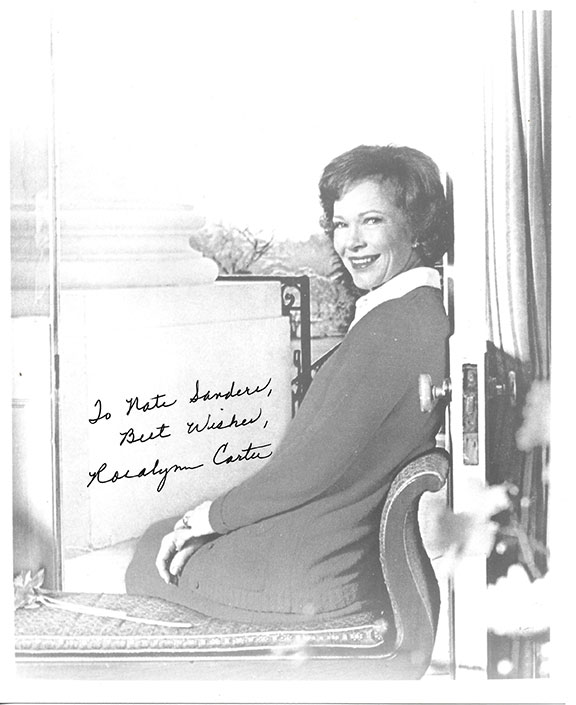 To Nate Sanders,
Best Wishes,
Rosalynn Carter